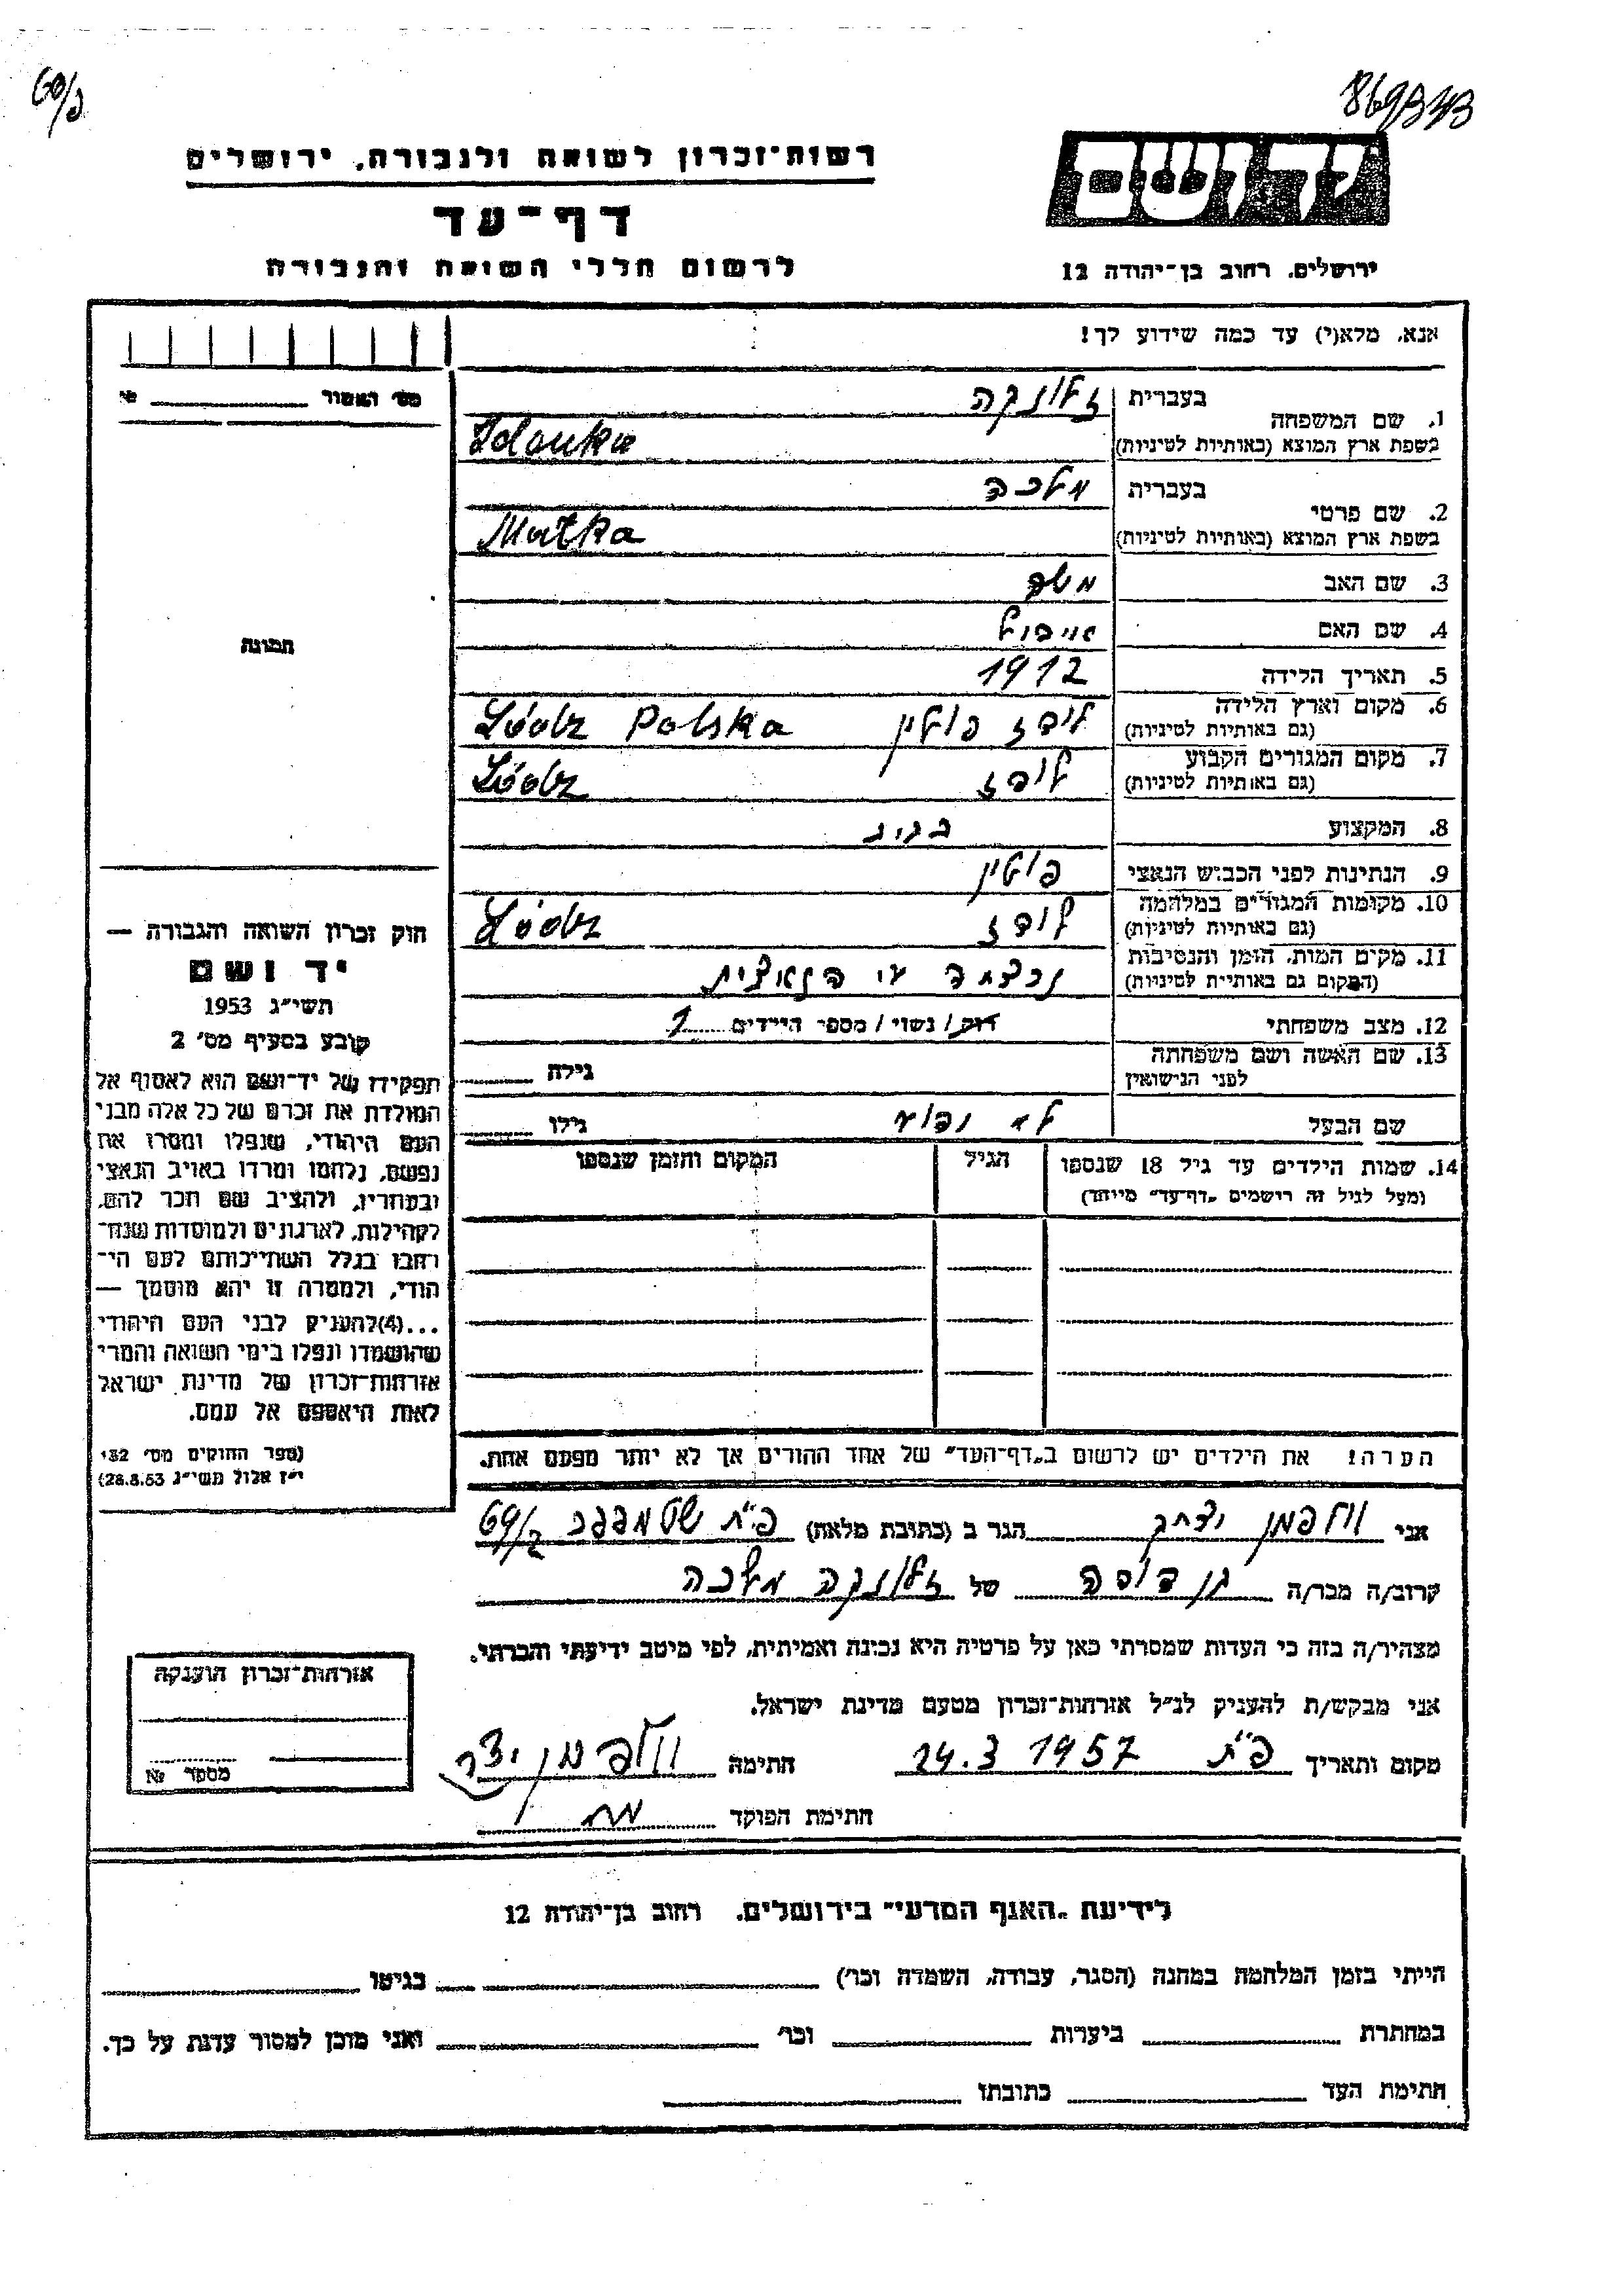 869343
60/2
יד ושם
רשות־זכרון לשואה ולגבורה, ירושלים
דף־עד
לרשום חללי השואה והגבורה
ירושלים, רחוב בן־יהודה 12
אנא, מלא(י) עד כמה שידוע לך!
מס' האשור № 
1. שם המשפחה
בעברית זלונקה
בשפת ארץ המוצא (באותיות לטיניות)
2. שם פרטי
בעברית מלכה
בשפת ארץ המוצא (באותיות לטיניות) Małka
3. שם האב משה
4. שם האם
5. תאריך הלידה 1912
6. מקום וארץ הלידה לודז פולין Łódz Polska
(גם באותיות לטיניות)
7. מקום המגורים הקבוע לודז Łódz
(גם באותיות לטיניות)
8. המקצוע
9. הנתינות לפני הכבוש הנאצי פולין
10. מקומות המגורים במלחמה לודז Łódz
(גם באותיות לטיניות)
11. מקום המות, הזמן והנסיבות
(המקום גם באותיות לטיניות)
12. מצב משפחתי רוק/נשוי/מספר הילדים 1
13. שם האשה ושם משפחתה
לפני הנישואין
גילה
שם הבעל לא ידוע גילו
14. שמות הילדים עד גיל 18 שנספו
(מעל לגיל זה רישמים „דף־עד" מיוחד)
הגיל
המקום והזמן שנספו
הערה! את הילדים יש לרשום ב„דף־העד" של אחד ההורים אך לא יותר מפעם אחת.
תמונה
חוק זכרון השואה והגבורה —
יד ושם
תשי"ג 1953
קובע בסעיף מס' 2
תפקידו של יד־ושם הוא לאסוף אל
המולדת את זכרם של כל אלה מבני
העם היהודי, שנפלו ומסרו את
נפשם, נלחמו ומרדו באויב הנאצי
ובעוזריו, ולהציב שם וזכר להם,
לקהילות, לארגונים ולמוסדות שנח־
רבו בגלל השתייכותם לעם הי־
הודי, ולמטרה זו יהא מוסמך —
...(4)להעניק לבני העם היהודי
שהושמדו ונפלו בימי השואה והמרי
אזרחות־זכרון של מדינת ישראל
לאות היאספם אל עמם.
(ספר החוקים מס' 132
י"ז אלול תשי"ג 28.8.53)
אני וולפמן יצחק הגר ב (כתובת מלאה) פ"ת
קרוב/ה מכר/ה של זלונקה מלכה
מצהיר/ה בזה כי העדות שמסרתי כאן על פרטיה היא נכונה ואמיתית, לפי מיטב ידיעתי והכרתי.
אני מבקש/ת להעניק לנ"ל אזרחות־זכרון מטעם מדינת ישראל.
מקום ותאריך פ"ת 14.3 1957 חתימה וולפמן
חתימת הפוקד
אזרחות־זכרון הוענקה
מספר №
לידיעת „האגף המדעי" בירושלים, רחוב בן־יהודה 12
הייתי בזמן המלחמה במחנה (הסגר, עבודה, השמדה וכו') בגיטו
במחתרת ביערות וכו' ואני מוכן למסור עדות על כך.
חתימת העד כתובתו